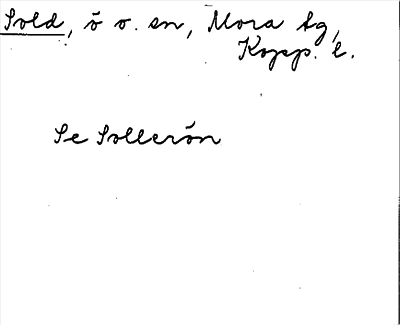 Sold, ö o. sn, Mora tg,
Kopp. l.
Se Sollerön